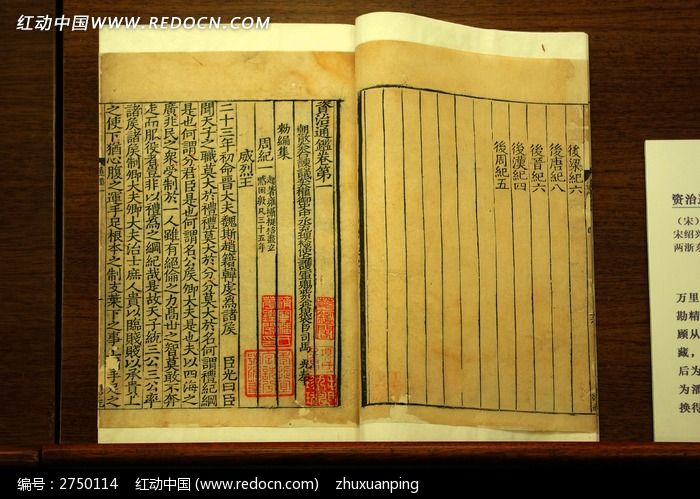 红动中国 www.REDOCN.com
後梁紀六
後唐紀八
後晉紀六
後漢紀四
後周紀五
資治通鑑卷第一
勑編集
周紀一
威烈王
二十三年初命晉大夫魏斯趙籍韓虔爲諸侯 臣光曰臣
聞天子之職莫大於禮禮莫大於分分莫大於名何謂禮紀綱
是也何謂分君臣是也何謂名公侯卿大夫是也夫以四海之
廣兆民之衆受制於一人雖有絕倫之力高世之智莫敢不奔
走而服役者豈非以禮爲之綱紀哉是故天子統三公三公率
諸侯諸侯制卿大夫卿大夫治士庶人貴以臨賤賤以承貴上
之使下猶心腹之運手足根本之制支葉下之事上
资治
（宋）
宋绍兴
两浙东
万里
勘精
顾从
藏，
后为
为潘
换得
编号：2750114 红动中国 (www.redocn.com) zhuxuanping